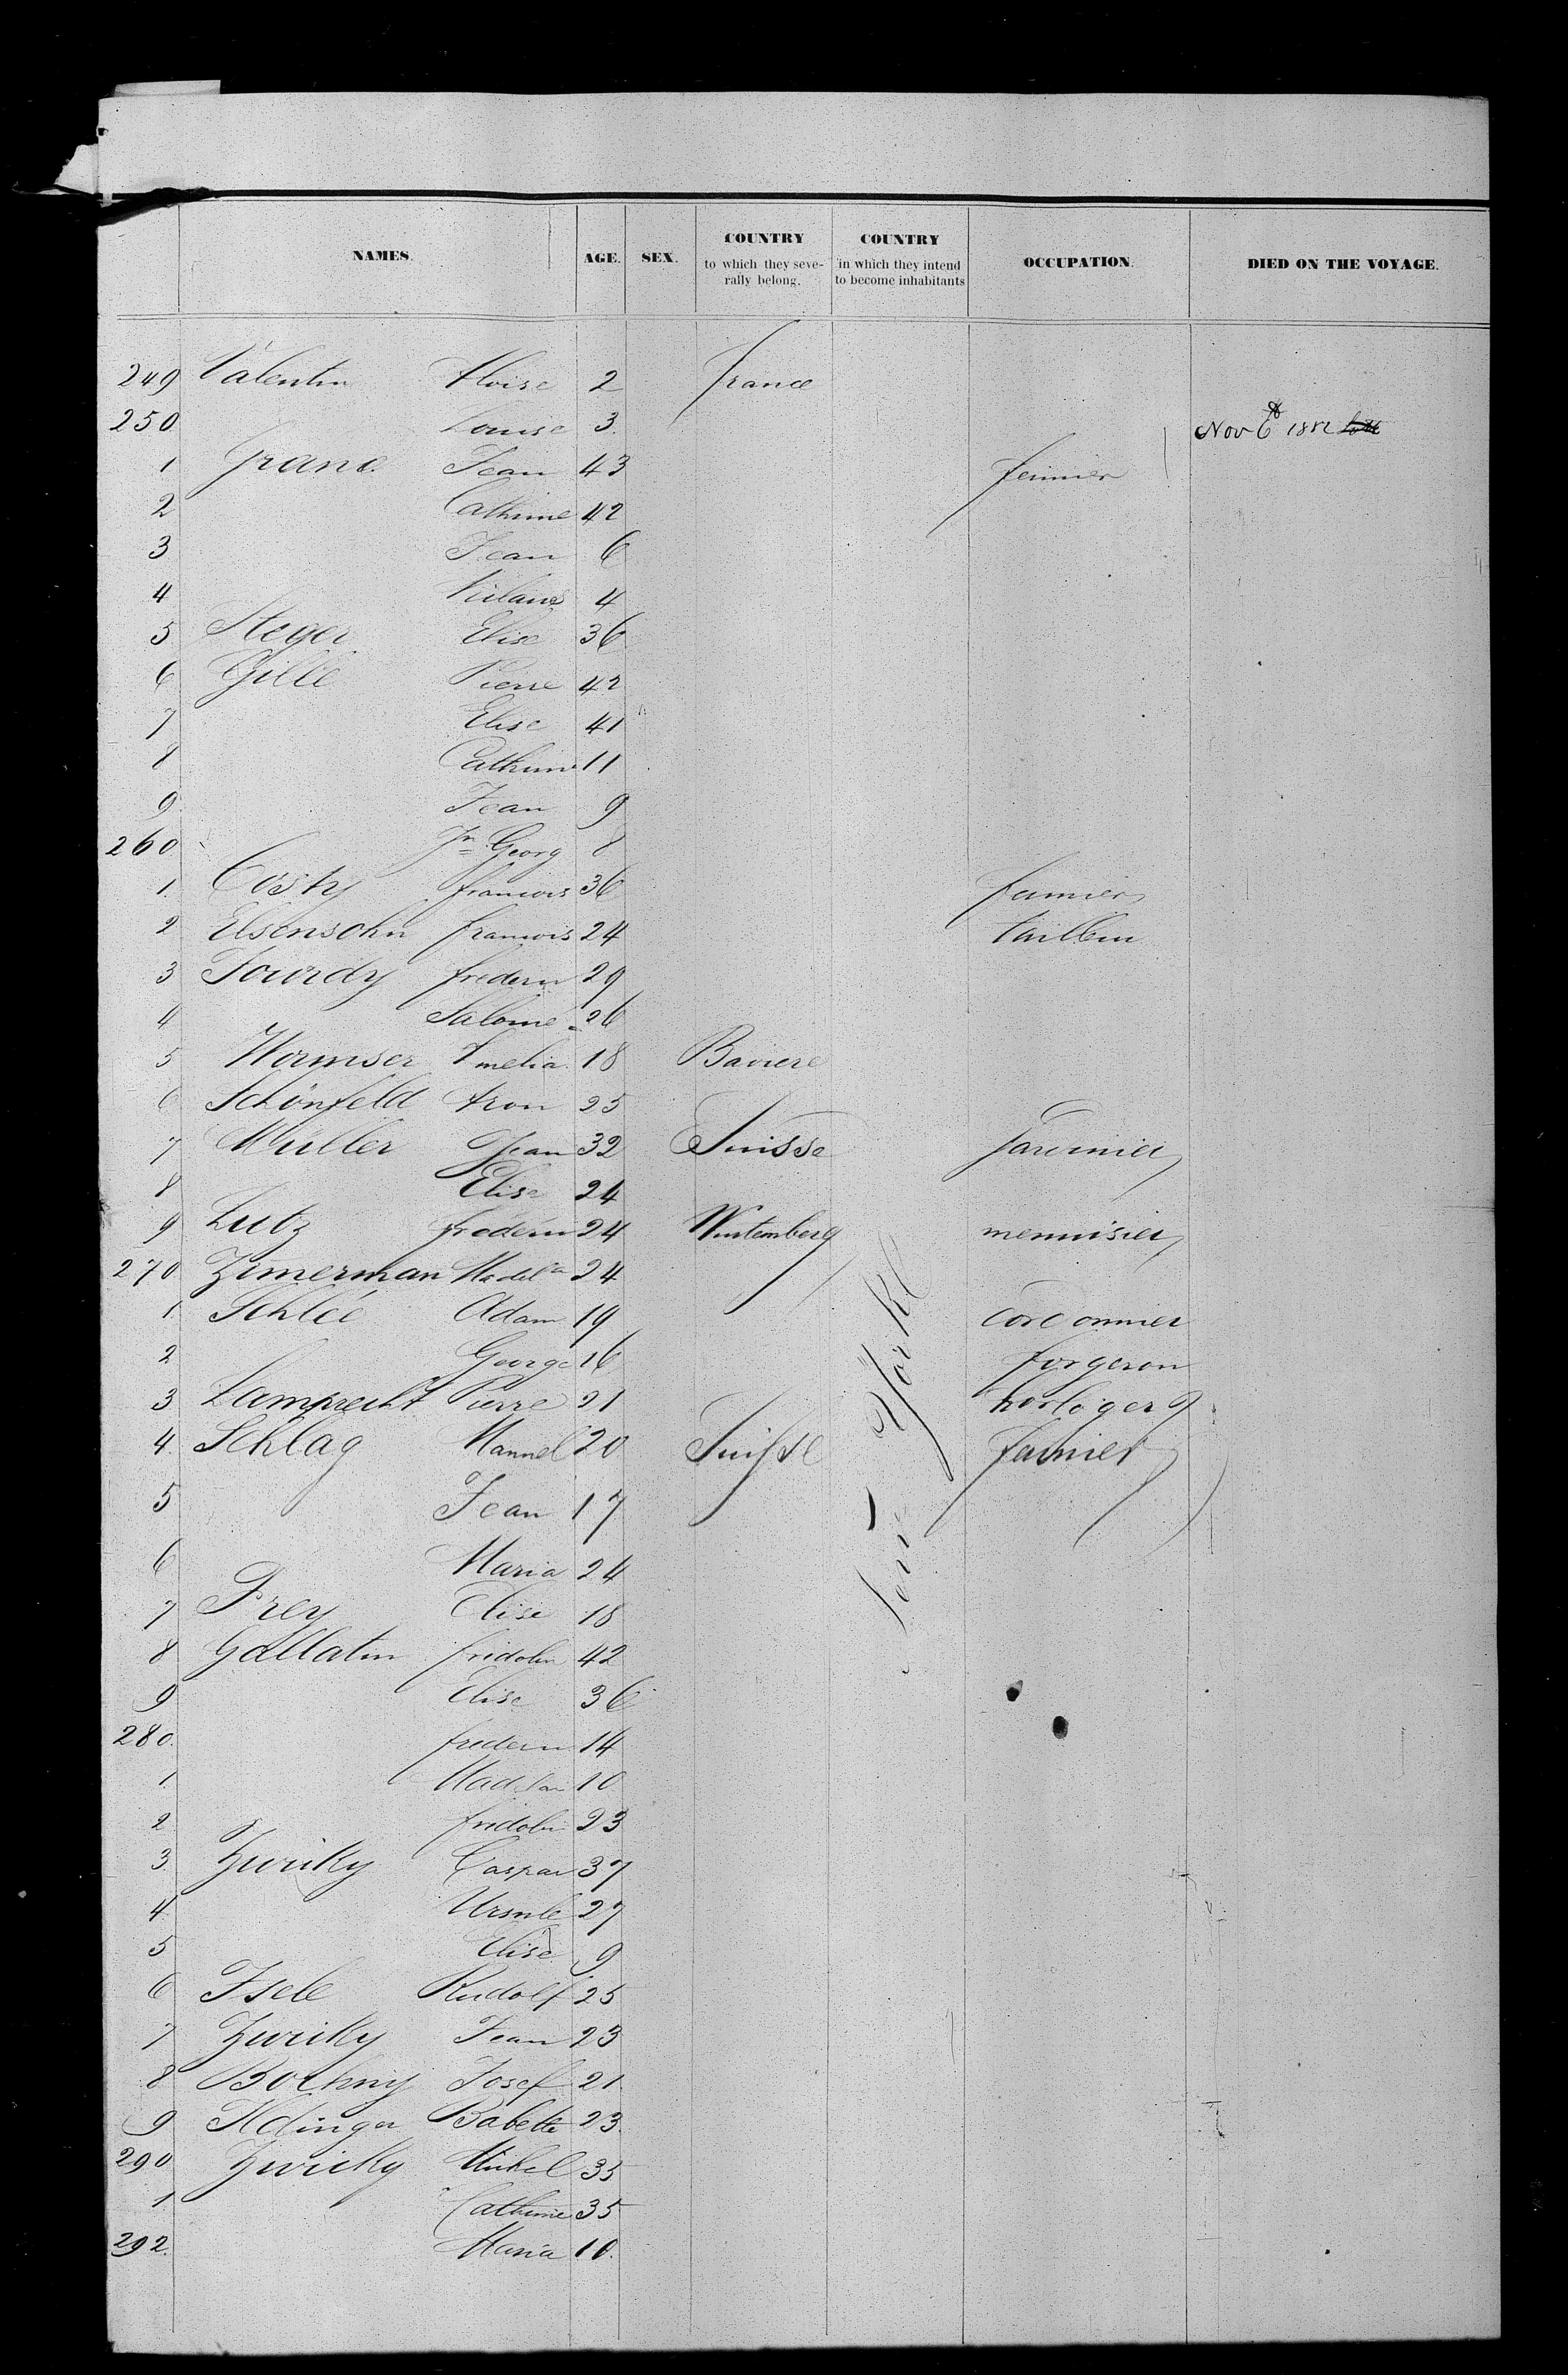 NAMES. AGE. SEX. COUNTRY to which they seve-rally belong. COUNTRY in which they intend to become inhabitants OCCUPATION. DIED ON THE VOYAGE.
249 Valentin Aloise 2 france
250 Louise 3 Nov 6 1852
1 Jean 43 fermier
2 Cathrine 42
3 Jean 6
4 4
5 Steger Elise 36
6 Gille Pierre 42
7 Elise 41
8 Cathrine 11
9 Jean 9
260 Jn Georg 8
1. Costy francois 36 fermier
2 Elsensohn francois 24 tailleur
3 Jourdy frederic 29
4 Salomé 26
5 Wormser Amelia 18 Baviere
6 Schönfeld Aron 25
7 Müller Jean 32 Suisse
8 Elise 24
9 Lutz frederic 24 Wurtemberg menuisier
270 Zimerman Madeln 24
1 Schlée Adam 19 cordonnier
2 George 16 forgeron
3 Lamprecht Pierre 21 horloger
4 Schlag Manuel 20 Suisse fermier
5 Jean 17
6 Maria 24
7 Frey Elise 18
8 Gallatin fridolin 42
9 Elise 36
280. frederic 14
1 10
2 fridolin 23
3 Zwicky Caspar 37
4 Ursule 27
5 Elise 9
6 Isele Rudolf 25
7 Zwicky Jean 23
8 Josef 21
9 Babette 23
290 Zwicky Mikel 35
1 Cathrine 35
292. Maria 10.
York